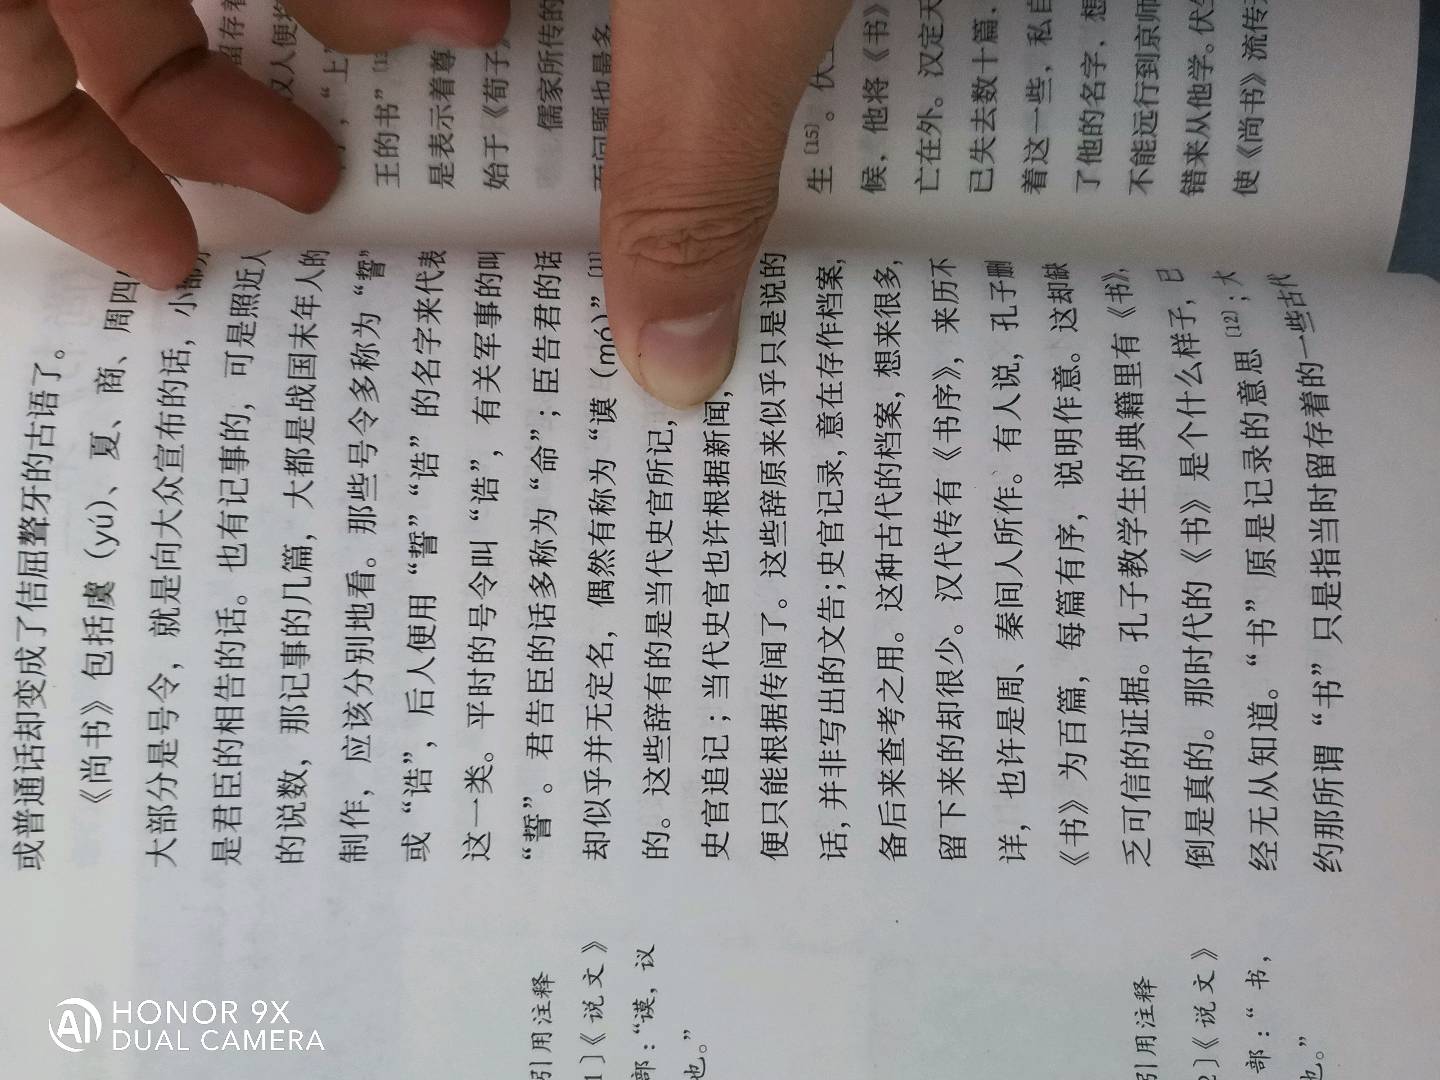 或普通话却变成了佶屈聱牙的古语了。
《尚书》包括虞（yú）、夏、商、周四
大部分是号令，就是向大众宣布的话，小部分
是君臣的相告的话。也有记事的，可是照近人
的说数，那记事的几篇，大都是战国末年人的
制作，应该分别地看。那些号令多称为“誓”
或“诰”，后人便用“誓”“诰”的名字来代表
这一类。平时的号令叫“诰”，有关军事的叫
“誓”。君告臣的话多称为“命”；臣告君的话
却似乎并无定名，偶然有称为“谟（mó）”[11]
的。这些辞有的是当代史官所记，
史官追记；当代史官也许根据新闻，
便只能根据传闻了。这些辞原来似乎只是说的
话，并非写出的文告；史官记录，意在存作档案，
备后来查考之用。这种古代的档案，想来很多，
留下来的却很少。汉代传有《书序》，来历不
详，也许是周、秦间人所作。有人说，孔子删
《书》为百篇，每篇有序，说明作意。这却缺
乏可信的证据。孔子教学生的典籍里有《书》，
倒是真的。那时代的《书》是个什么样子，已
经无从知道。“书”原是记录的意思[12]；大
约那所谓“书”只是指当时留存着的一些古代
引用注释
1]《说文》
部：“谟，议
也。”
引用注释
2]《说文》
部：“书，
也。”
留存着
汉人便将
，“上”
王的书”
是表示着尊
始于《荀子》
儒家所传的
而问题也最多
生[15]。伏
候，他将《书》
亡在外。汉定天
已失去数十篇，
着这一些，私自
了他的名字，想
不能远行到京师
错来从他学。伏生
使《尚书》流传
HONOR 9X
DUAL CAMERA